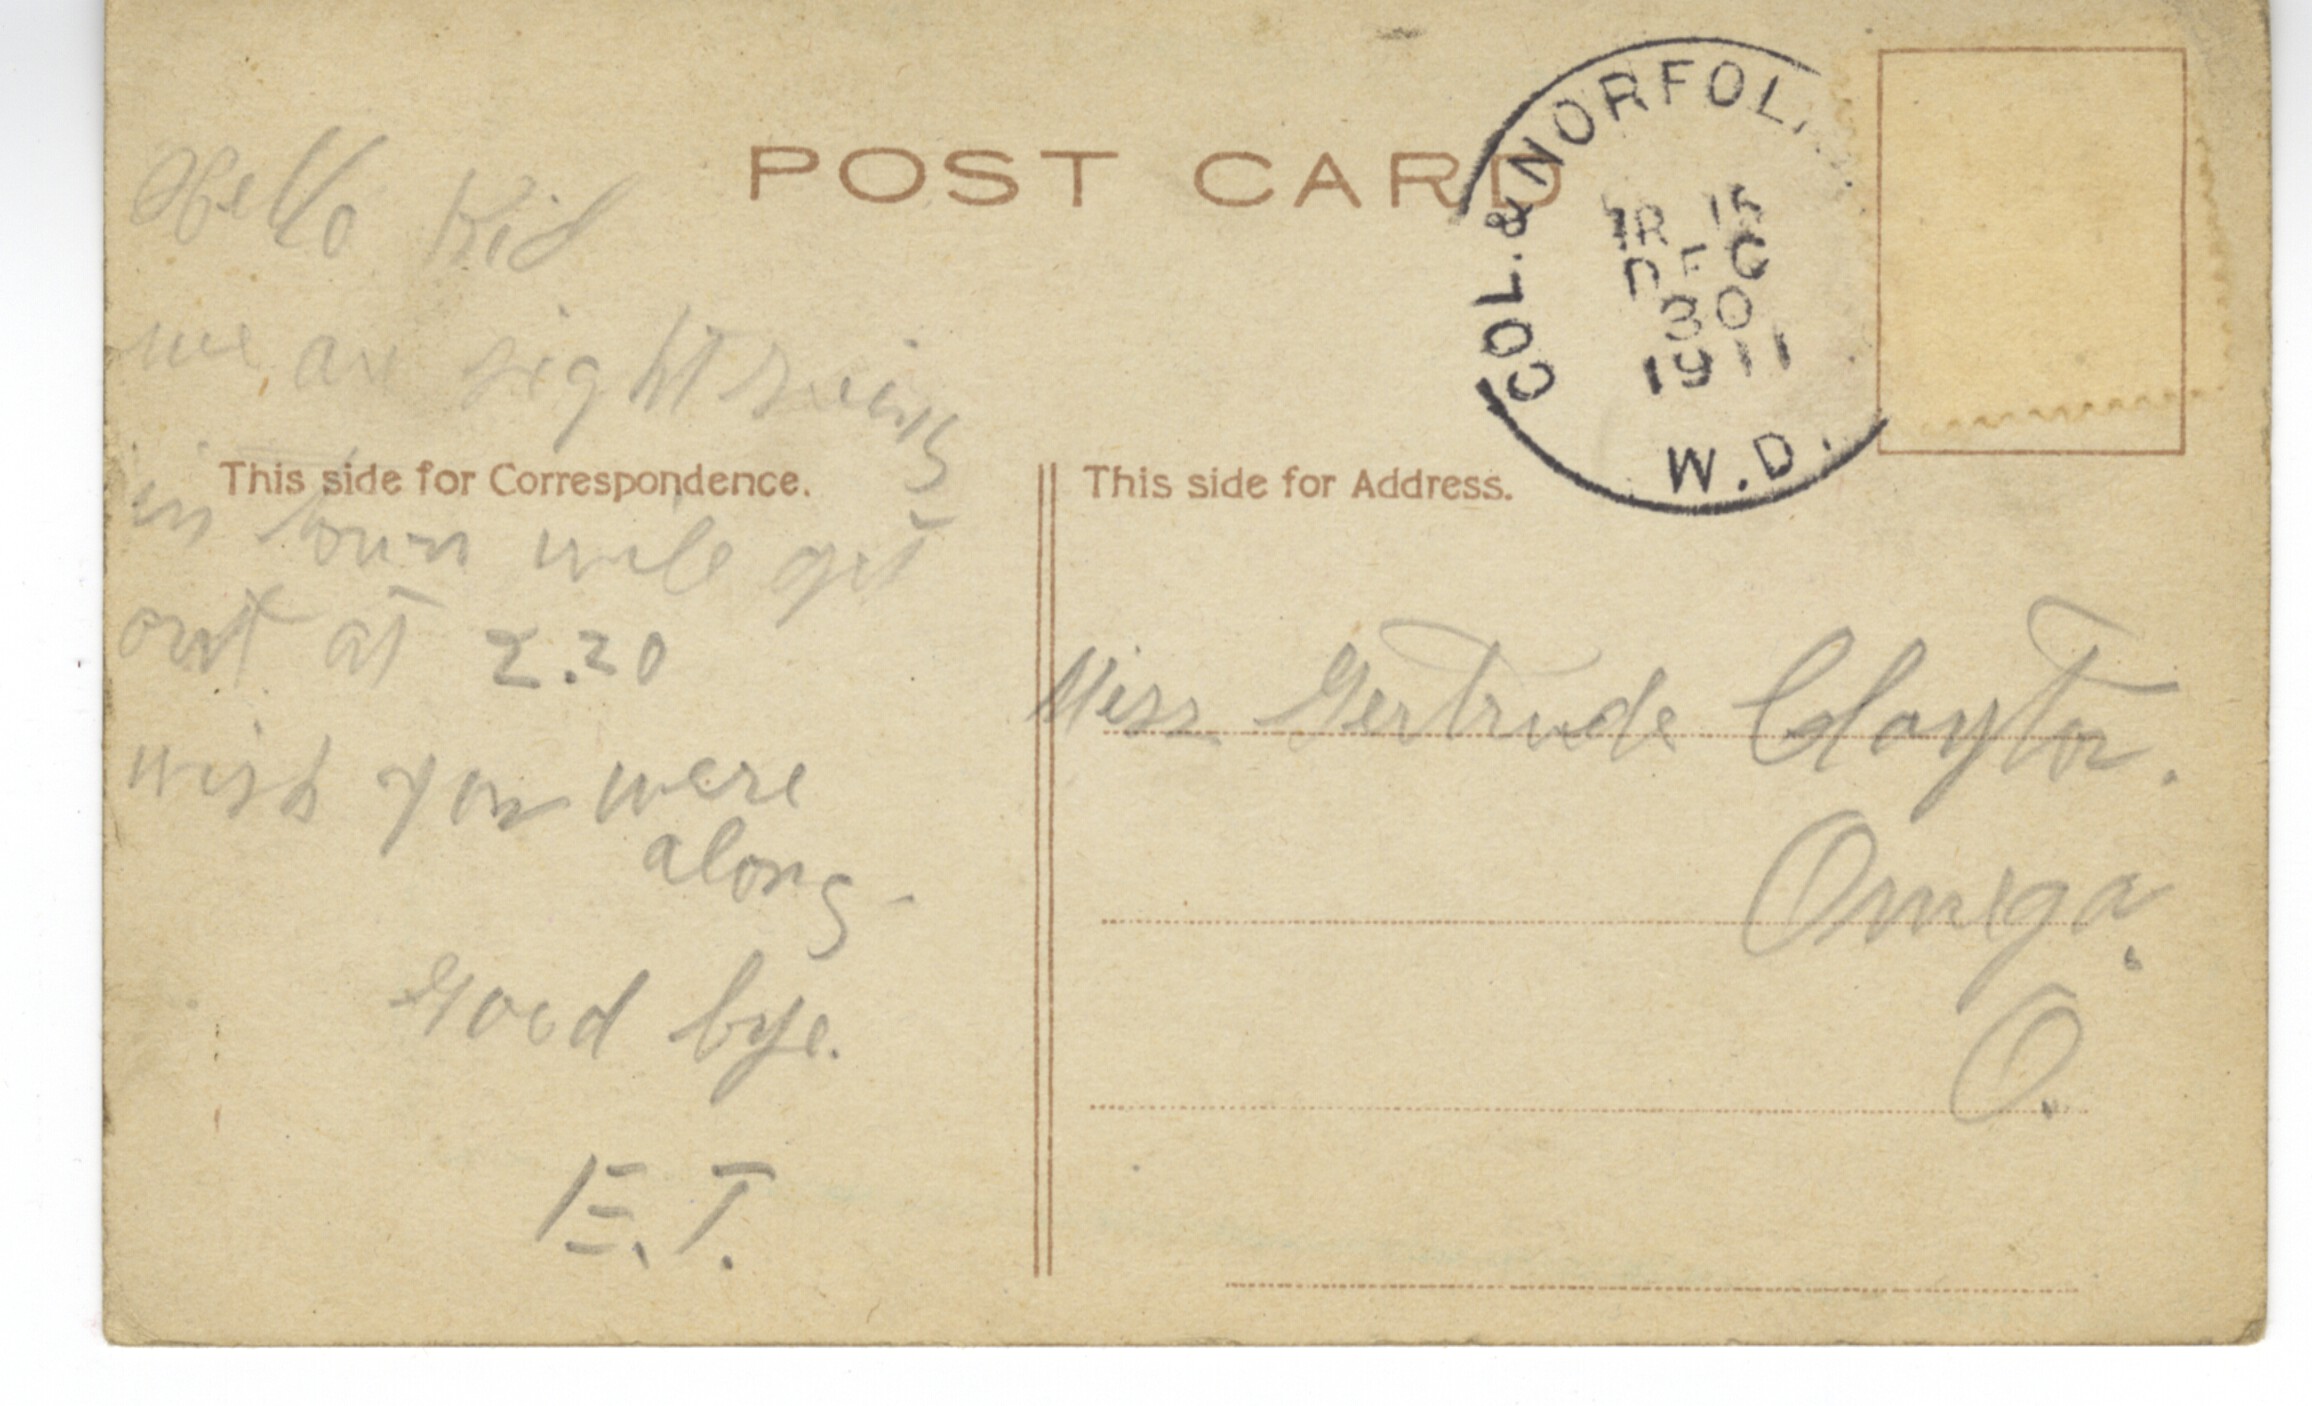 POST CARD
COL. & NORFOL
TR 15
DEC
30
1911
W.D.
This side for Correspondence.
This side for Address.
Hello Kid
we are sight seeing
in town will get
out at 2.20
wish you were
along-
Good bye.
E.T.
Miss Gertrude Clayton.
Omega.
O.